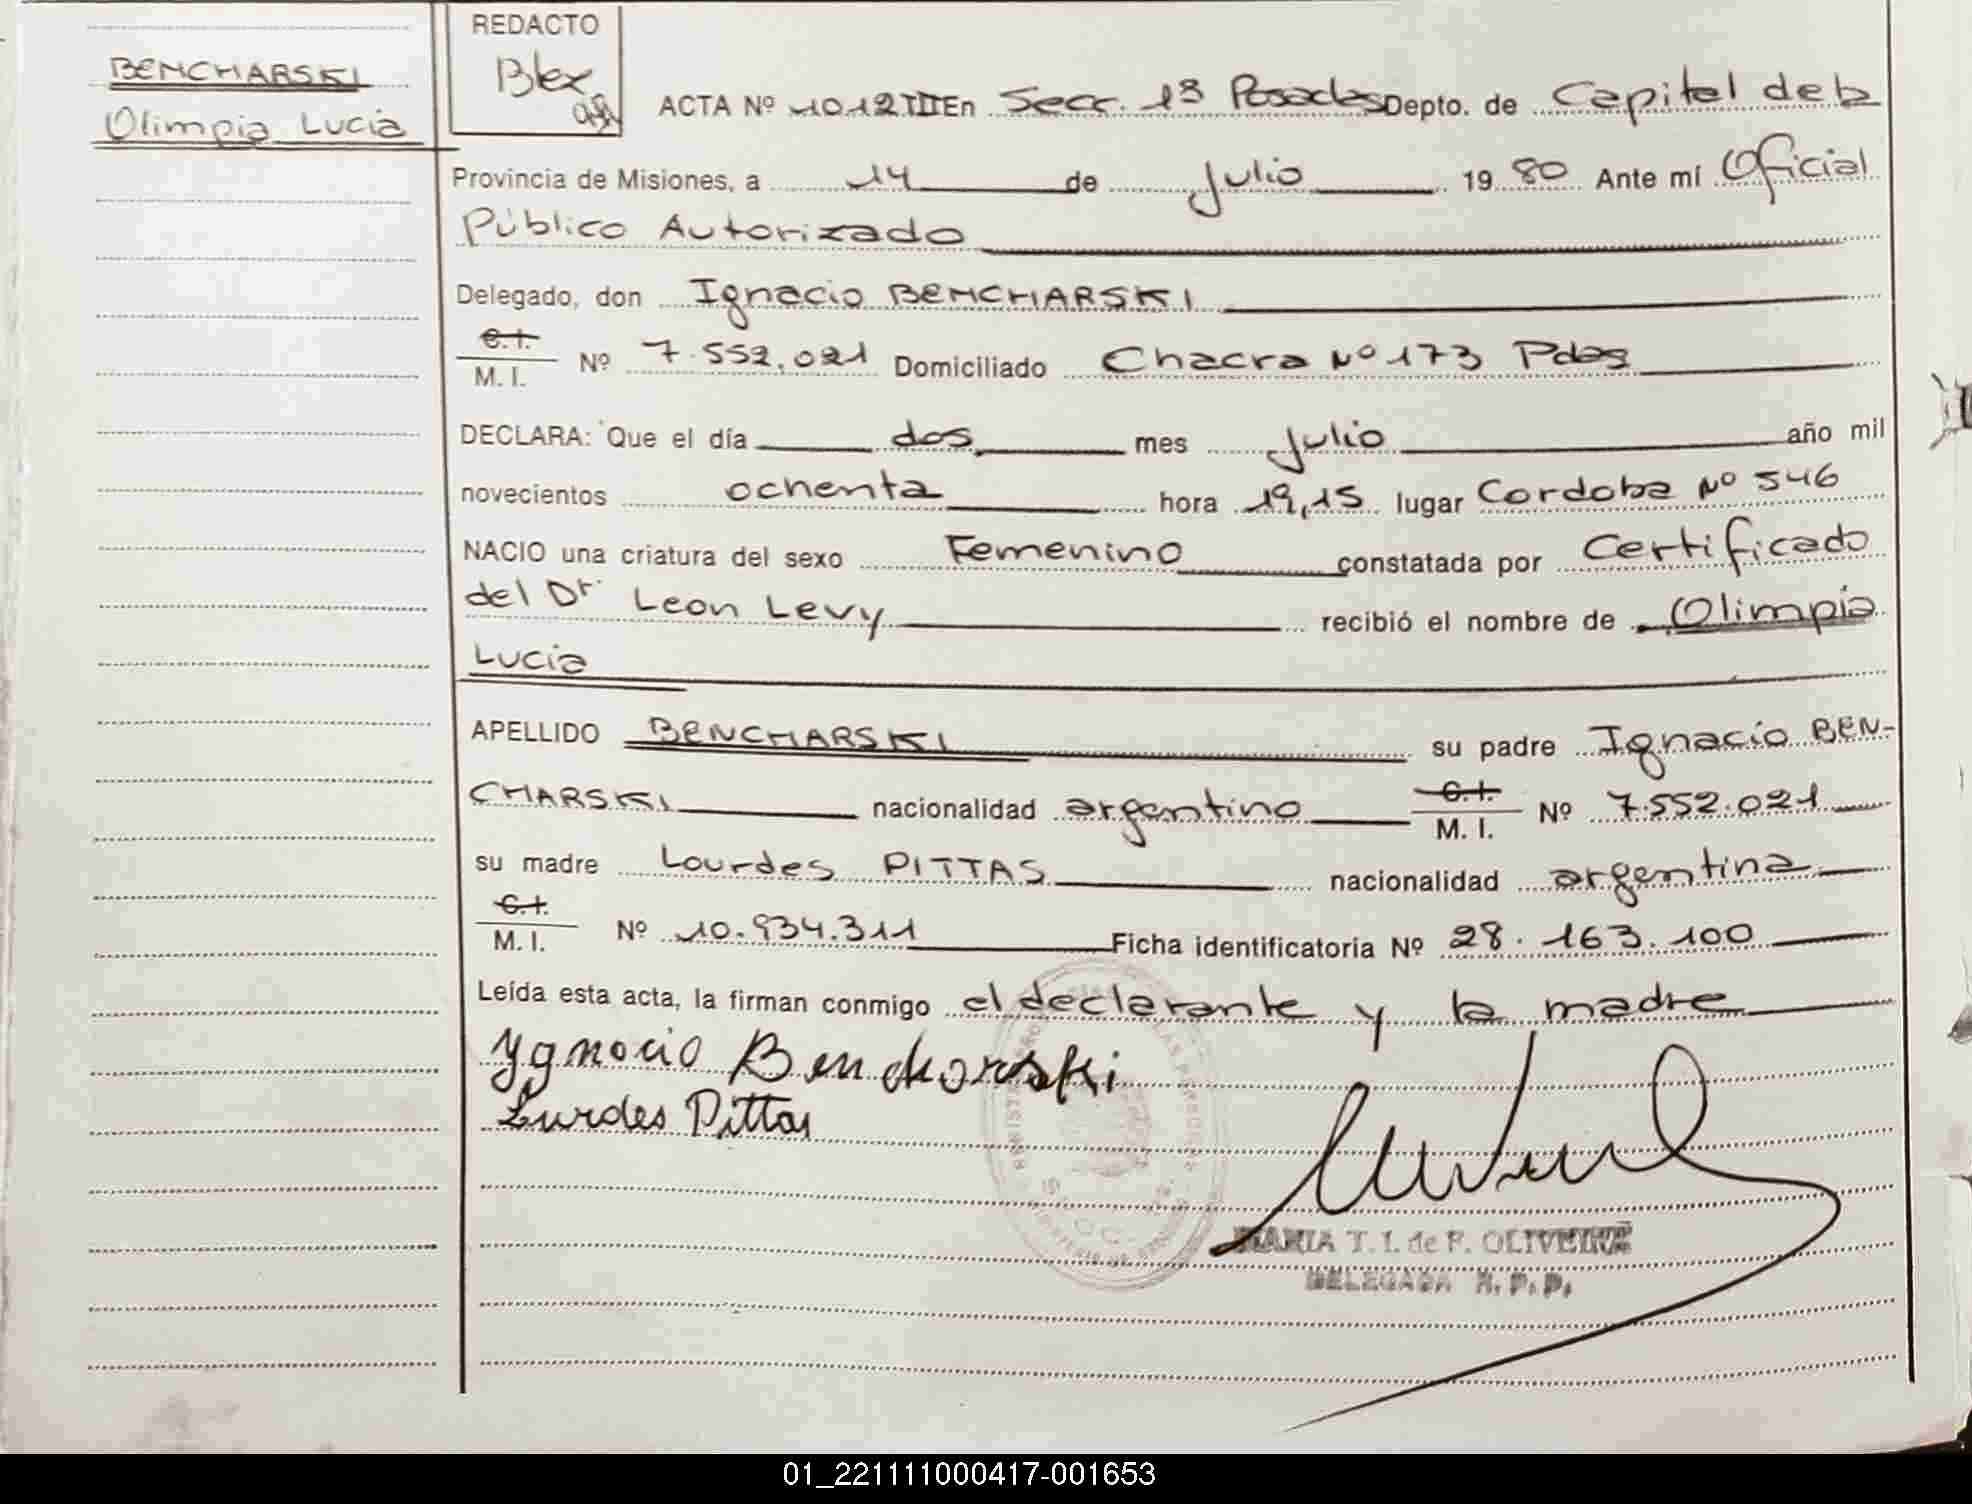 REDACTO
BENCHARSKI
Olimpia Lucia
ACTA Nº 1012 III En Secc. 1ª Posadas Depto. de Capital de la
Provincia de Misiones, a 14 de Julio 1980 Ante mí Oficial
Público Autorizado
Delegado, don Ignacio BENCHARSKI
C.I.
M. I. Nº 7.552.021 Domiciliado Chacra Nº 173 Pdas
DECLARA: Que el día dos mes Julio año mil
novecientos ochenta hora 19,15 lugar Cordoba Nº 546
NACIO una criatura del sexo Femenino constatada por Certificado
del Dr. Leon Levy recibió el nombre de Olimpia
Lucia
APELLIDO BENCHARSKI su padre Ignacio BEN-
CHARSKI nacionalidad argentino C.I. M. I. Nº 7.552.021
su madre Lourdes PITTAS nacionalidad argentina
C.I.
M. I. Nº 10.934.311 Ficha identificatoria Nº 28.163.100
Leída esta acta, la firman conmigo el declarante y la madre
Ygnacio Bencharski
Lurdes Pittas
MARIA T. I. de F. OLIVEIRA
DELEGADA R. P. P.
01_221111000417-001653